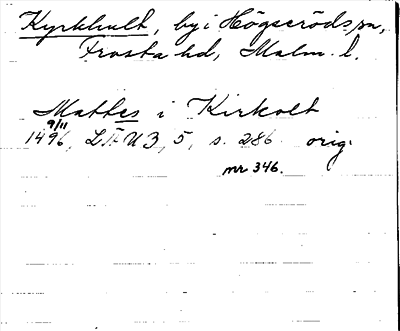 Kyrkhult, by i Högseröds sn,
Frosta hd, Malm. l.
Mattes i Kirkolt
9/11
1496, LÄU 3, 5, s. 286 orig.
nr 346.